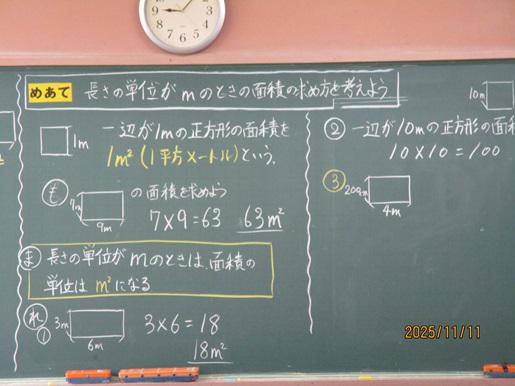 めあて 長さの単位がmのときの面積の求め方を考えよう
1m
一辺が1mの正方形の面積を
1m²(1平方メートル)という。
も
7m
9m
の面積を求めよう
7×9=63 63m²
ま 長さの単位がmのときは、面積の
単位は m²になる
れ
①
3m
6m
3×6=18
18m²
10m
② 一辺が10mの正方形の面積
10×10=100
③
200cm
4m
2025/11/11
9
8
7
6
5
4
3